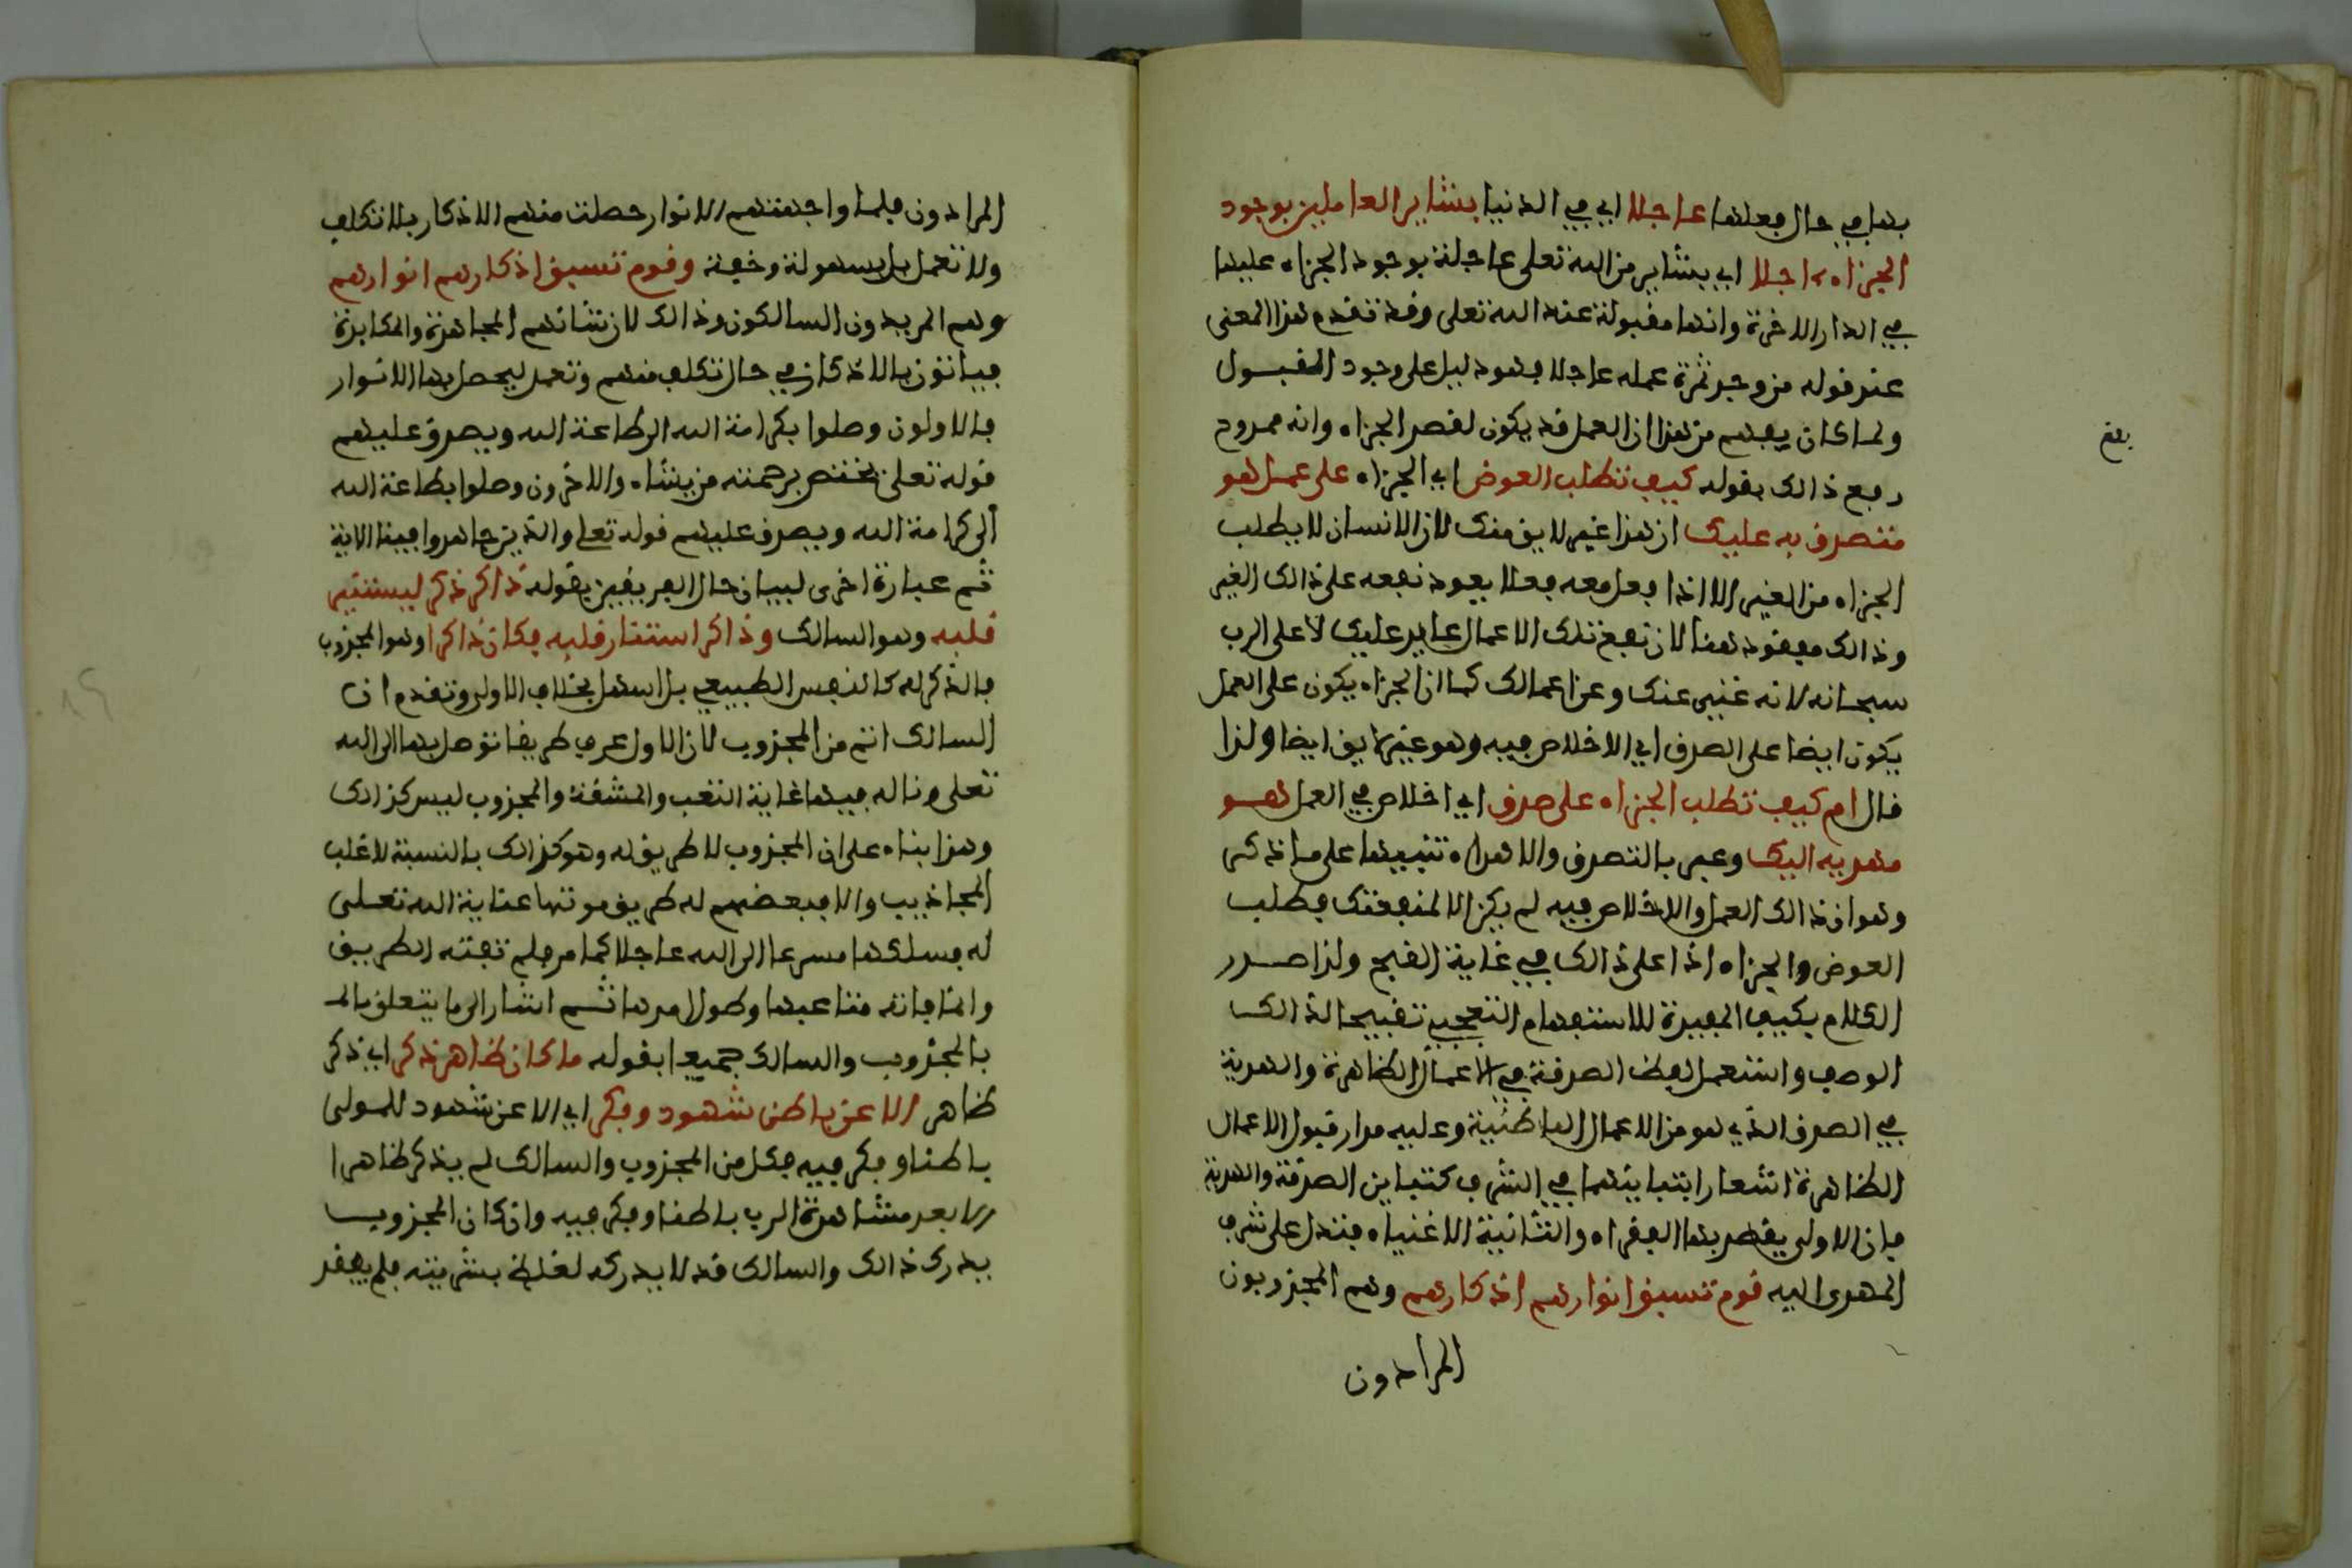 بها في حال فعلها عاجلا اي في الدنيا بشاير العاملين بوجود
الجزاء ءاجلا اي بشاير من الله تعلى عاجلة بوجود الجزاء عليها
في الدار الاخرة وانها مقبولة عند الله تعلى وقد تقدم هذا المعنى
عند قوله من وجد ثمرة عمله عاجلا فهو دليل على وجود القبول
ولما كان يفهم من هذا ان العمل قد يكون لقصد الجزاء وانه ممدوح
دفع ذالك بقوله كيف تطلب العوض اي الجزاء على عمل هو
متصدق به عليك ان هذا غير لايق منك لان الانسان لا يطلب
الجزاء من الغير الا اذا فعل معه فعلا يعود نفعه على ذالك الغير
وذالك مفقود هنا لان نفع تلك الاعمال عايد عليك لا على الرب
سبحانه لانه غني عنك وعن اعمالك كما ان الجزاء يكون على العمل
يكون ايضا على الصدق اي الاخلاص فيه وهو غير لايق ايضا ولذا
قال ام كيف تطلب الجزاء على صدق اي اخلاص في العمل هو
مهديه اليك وعبر بالتصدق والاهداء تنبيها على ما ذكر
وهو ان ذالك العمل والاخلاص فيه لم يكن الا لمنفعتك فطلب
العوض والجزاء اذا على ذالك في غاية القبح ولذا صدر
الكلام بكيف المفيدة للاستفهام التعجبي تقبيحا لذالك
الوصف واستعمل لفظ الصدقة في الاعمال الظاهرة والهدية
في الصدق الذي هو من الاعمال الباطنية وعليه مدار قبول الاعمال
الظاهرة اشعارا بتباينهما في الشرف كتباين الصدقة والهدية
فان الاولى يقصد بها الفقراء والثانية الاغنياء فتدل على شرف
المهدى اليه قوم تسبق انوارهم اذكارهم وهم المجذوبون
المرادون
المرادون فلما واجهتهم الانوار حصلت منهم الاذكار بلا تكلف
ولا تعمل بل بسهولة وخفة وقوم تسبق اذكارهم انوارهم
وهم المريدون السالكون وذالك لان شانهم المجاهدة والمكابدة
فياتون بالاذكار في حال تكلف منهم وتعمل ليحصل بها الانوار
فالاولون وصلوا بكرامة الله الى طاعة الله ويصدق عليهم
قوله تعلى يختص برحمته من يشاء والاخرون وصلوا بطاعة الله
الى كرامة الله ويصدق عليهم قوله تعلى والذين جاهدوا فينا الاية
ثم عبارة اخرى لبيان حال الفريقين بقوله ذاكر ذكر ليستنير
قلبه وهو السالك وذاكر استنار قلبه فكان ذاكرا وهو المجذوب
فالذكر له كالنفس الطبيعي بل اسهل بخلاف الاول وتقدم ان
السالك اتم من المجذوب لان الاول عرف طريقا توصل بها الى الله
تعلى وناله فيها غاية التعب والمشقة والمجذوب ليس كذالك
وهذا بناء على ان المجذوب لا طريق له وهو كذالك بالنسبة لاغلب
المجاذيب والا فبعضهم له طريق موتها عناية الله تعلى
له فسلكها مسرعا الى الله عاجلا كما مر فلم تفته الطريق
وانما فاته متاعبها وطول امدها ثم اشار الى ما يتعلق بالـ
بالمجذوب والسالك جميعا بقوله ما كان ظاهر ذكر اي ذكر
ظاهر الا عن باطن شهود وفكر اي الا عن شهود للمولى
باطنا وفكر فيه فكل من المجذوب والسالك لم يذكر ظاهرا
الا بعد مشاهدة الرب باطنا وفكر فيه وان كان المجذوب
يدرك ذالك والسالك قد لا يدركه لغلظ بشريته فلم يفقد